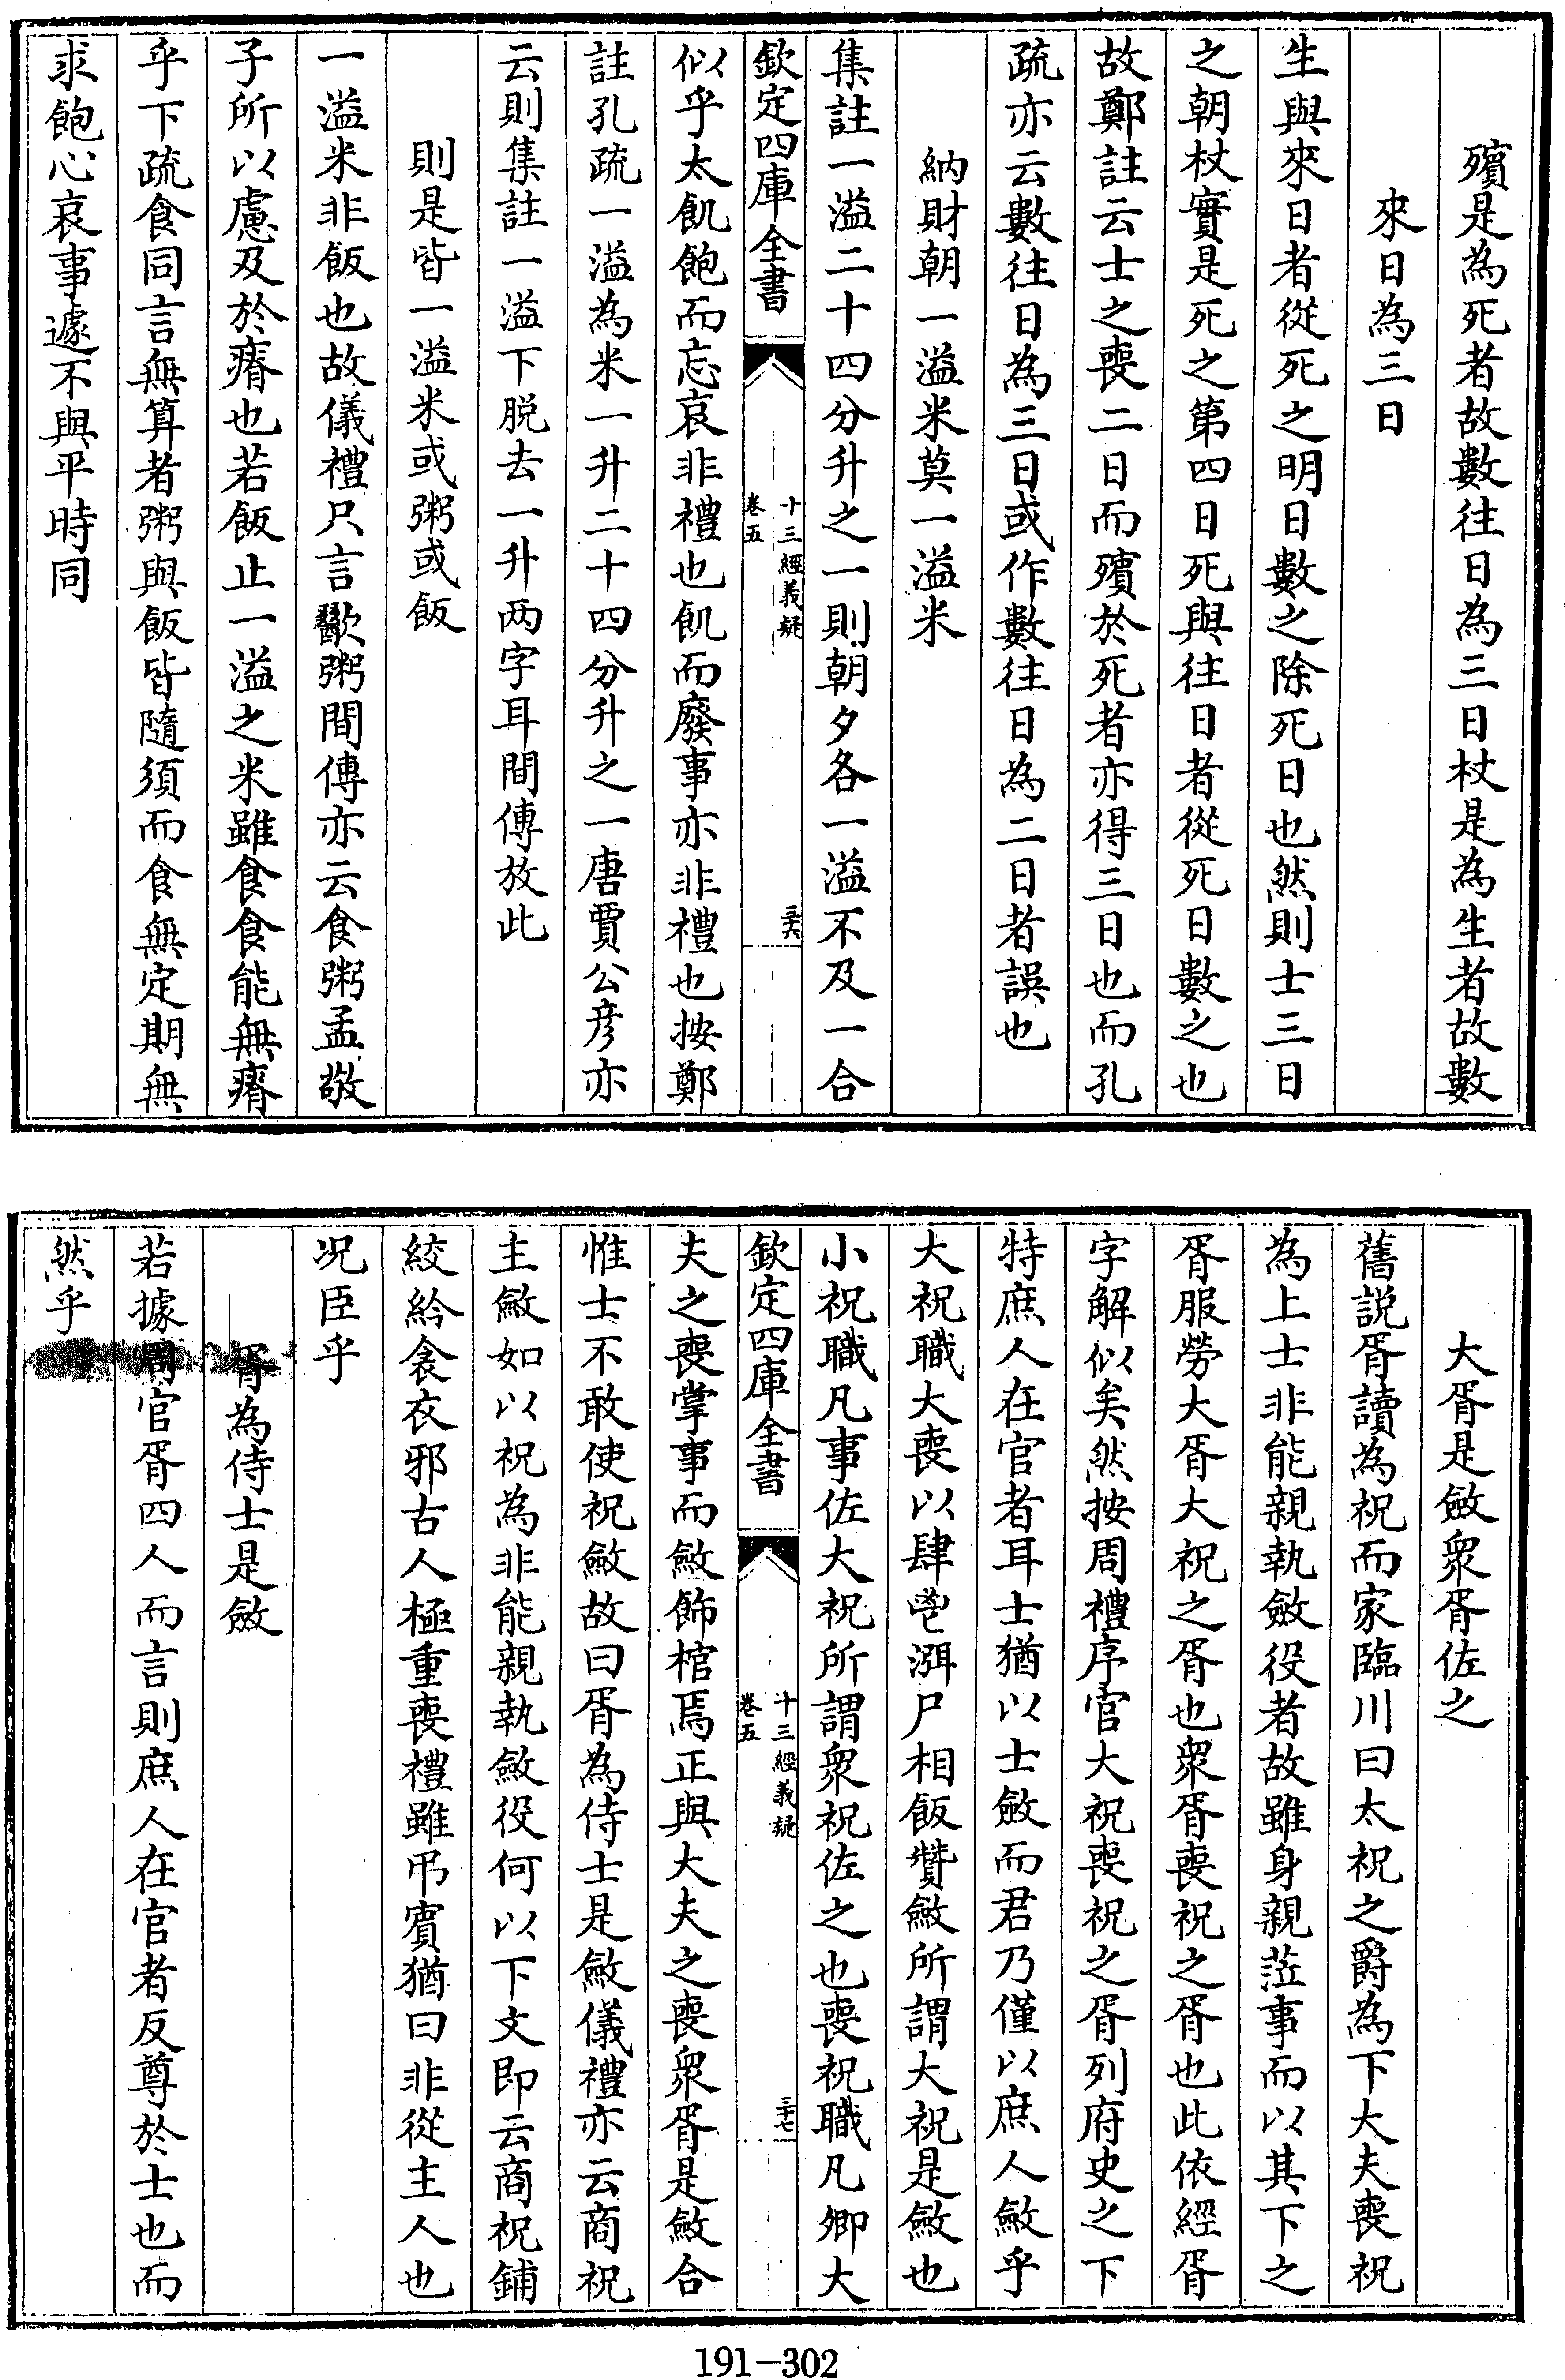 殯是為死者故數往日為三日杖是為生者故數
來日為三日
生與來日者從死之明日數之除死日也然則士三日
之朝杖實是死之第四日死與往日者從死日數之也
故鄭註云士之喪二日而殯於死者亦得三日也而孔
疏亦云數往日為三日或作數往日為二日者誤也
納財朝一溢米莫一溢米
集註一溢二十四分升之一則朝夕各一溢不及一合
欽定四庫全書
十三經義疑
卷五
三十六
似乎太飢飽而忘哀非禮也飢而廢事亦非禮也按鄭
註孔疏一溢為米一升二十四分升之一唐賈公彥亦
云則集註一溢下脱去一升两字耳間傳放此
則是皆一溢米或粥或飯
一溢米非飯也故儀禮只言歠粥間傳亦云食粥孟敬
子所以慮及於瘠也若飯止一溢之米雖食食能無瘠
乎下疏食同言無算者粥與飯皆隨須而食無定期無
求飽心哀事遽不與平時同
大胥是斂衆胥佐之
舊説胥讀為祝而家臨川曰太祝之爵為下大夫喪祝
為上士非能親執斂役者故雖身親蒞事而以其下之
胥服勞大胥大祝之胥也衆胥喪祝之胥也此依經胥
字解似矣然按周禮序官大祝喪祝之胥列府史之下
特庶人在官者耳士猶以士斂而君乃僅以庶人斂乎
大祝職大喪以肆鬯渳尸相飯贊斂所謂大祝是斂也
小祝職凡事佐大祝所謂衆祝佐之也喪祝職凡卿大
欽定四庫全書
十三經義疑
卷五
三十七
夫之喪掌事而斂飾棺焉正與大夫之喪衆胥是斂合
惟士不敢使祝斂故曰胥為侍士是斂儀禮亦云商祝
主斂如以祝為非能親執斂役何以下文即云商祝鋪
絞紟衾衣邪古人極重喪禮雖弔賓猶曰非從主人也
况臣乎
胥為侍士是斂
若據周官胥四人而言則庶人在官者反尊於士也而
然乎
191-302